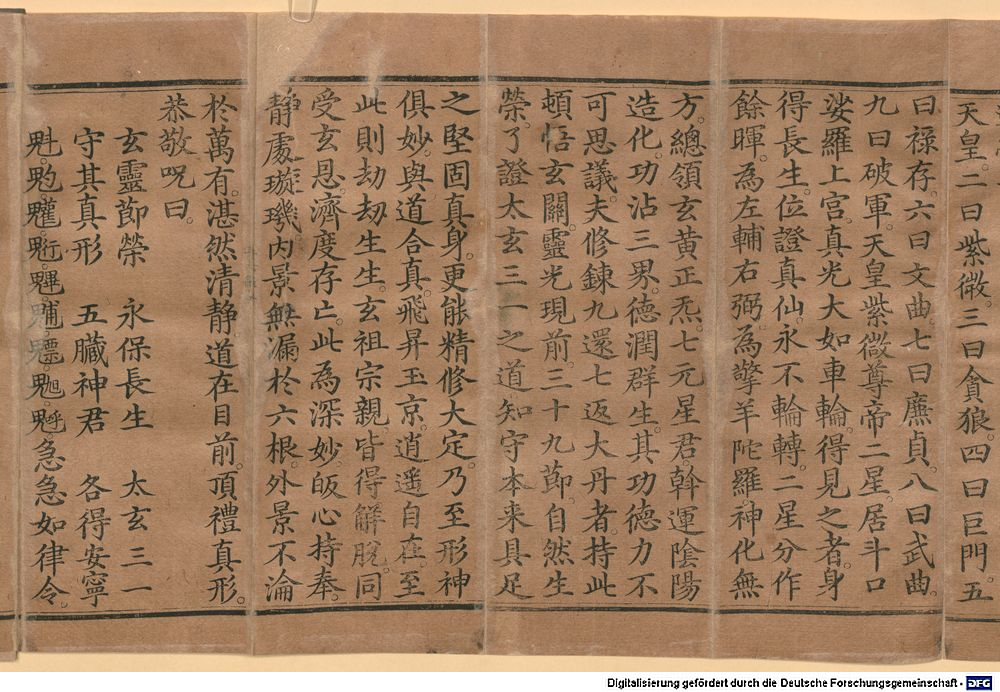 天皇。二曰紫微。三曰貪狼。四曰巨門。五
曰禄存。六曰文曲。七曰廉貞。八曰武曲。
九曰破軍。天皇紫微尊帝二星。居斗口
娑羅上宮。真光大如車輪。得見之者。身
得長生。位證真仙。永不輪轉。二星分作
餘暉。為左輔右弼。為擎羊陀羅神化無
方。總領玄黄正炁。七元星君斡運陰陽
造化。功沾三界。德潤群生。其功德力不
可思議。夫修鍊九還七返大丹者。持此
頓悟玄關。靈光現前。三十九節。自然生
榮。了證太玄三一之道。知守本來具足
之堅固真身。更能精修大定。乃至形神
俱妙。與道合真。飛昇玉京。逍遥自在。至
此則劫劫生生。玄祖宗親。皆得觧脫。同
受玄恩。濟度存亡。此為深妙。皈心持奉。
静處璇璣。内景無漏於六根。外景不淪
於萬有。湛然清静。道在目前。頂禮真形。
恭敬呪曰。
玄靈節榮　永保長生　太玄三一
守其真形　五臟神君　各得安寧
急急如律令。
Digitalisierung gefördert durch die Deutsche Forschungsgemeinschaft - DFG